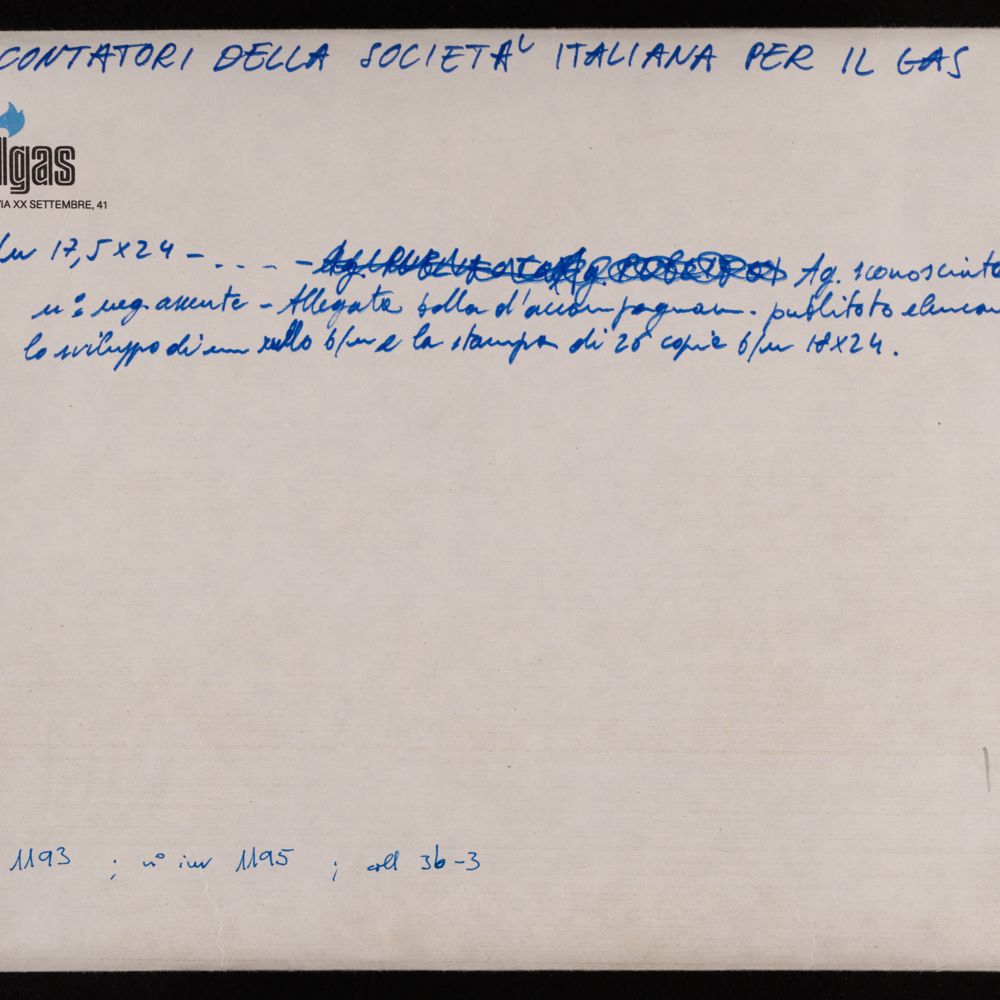 CONTATORI DELLA SOCIETA' ITALIANA PER IL GAS
lgas
VIA XX SETTEMBRE, 41
17,5X24 - . . . . - Ag. sconosciuto
n° neg. assente - Allegata bolla d'accompagnam.
lo sviluppo di un rullo b/n e la stampa di 26 copie b/n 18X24.
1193 ; n° inv 1195 ; coll 3b-3